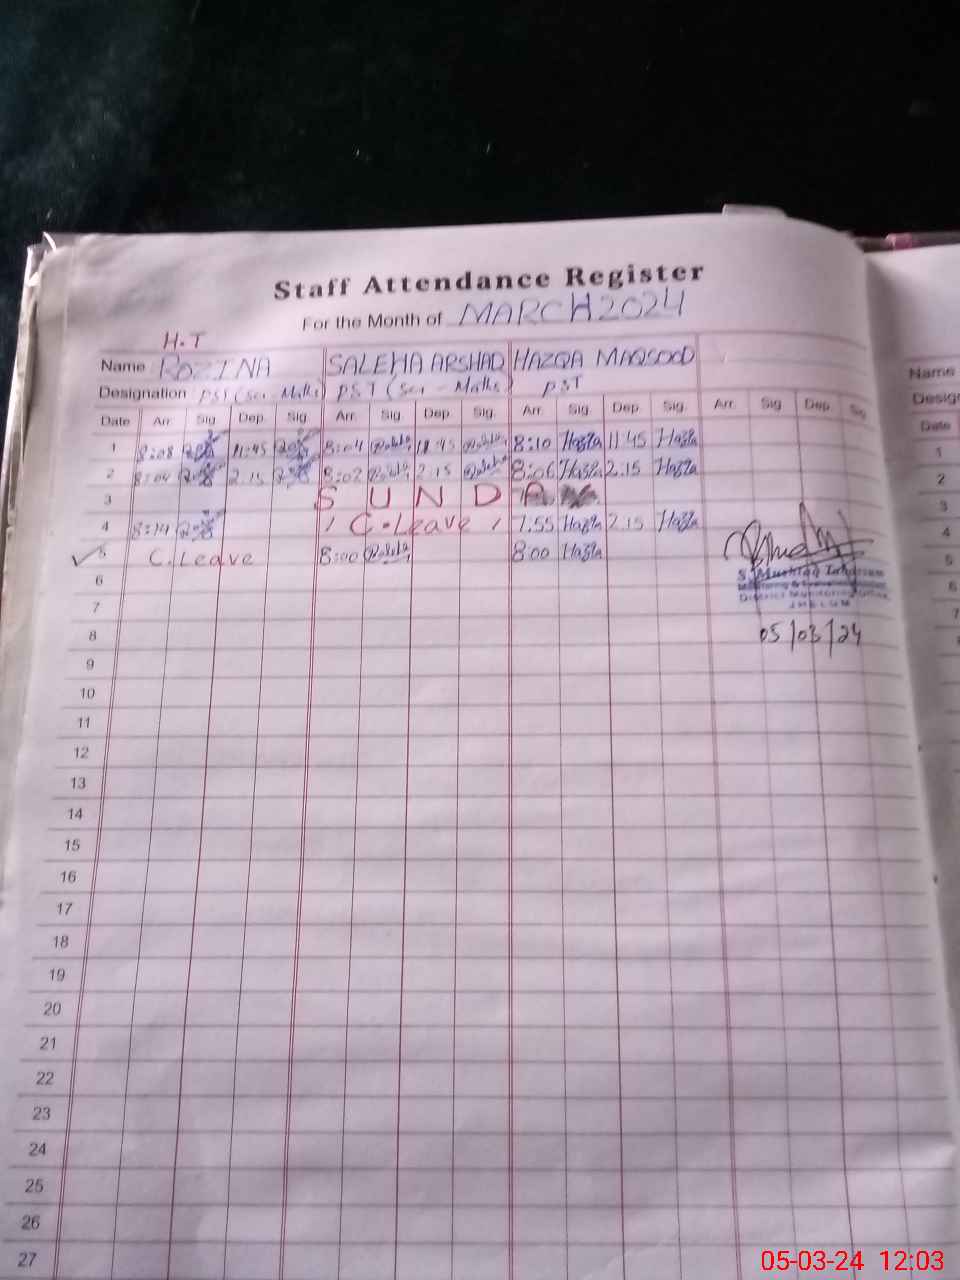 Staff Attendance Register
For the Month of MARCH 2024
H.T
Name ROZINA SALEHA ARSHAD HAZQA MAQSOOD
Designation PST (Sci - Maths) PST (Sci - Maths) PST
Date Arr. Sig. Dep. Sig. Arr. Sig. Dep. Sig. Arr. Sig. Dep. Sig. Arr. Sig. Dep. Sig
1 8:08 11:45 8:04 11:45 8:10 Hazqa 11:45 Hazqa
2 8:04 2:15 8:02 2:15 8:06 Hazqa 2:15 Hazqa
3 S U N D A
4 8:14 C.Leave 7.55 Hazqa 2.15 Hazqa
5 C.Leave 8:00 8:00 Hazqa
6
7
8
9
10
11
12
13
14
15
16
17
18
19
20
21
22
23
24
25
26
27
District Monitoring
JHELUM
05/03/24
Name
Date
1
2
3
4
5
6
05-03-24 12:03